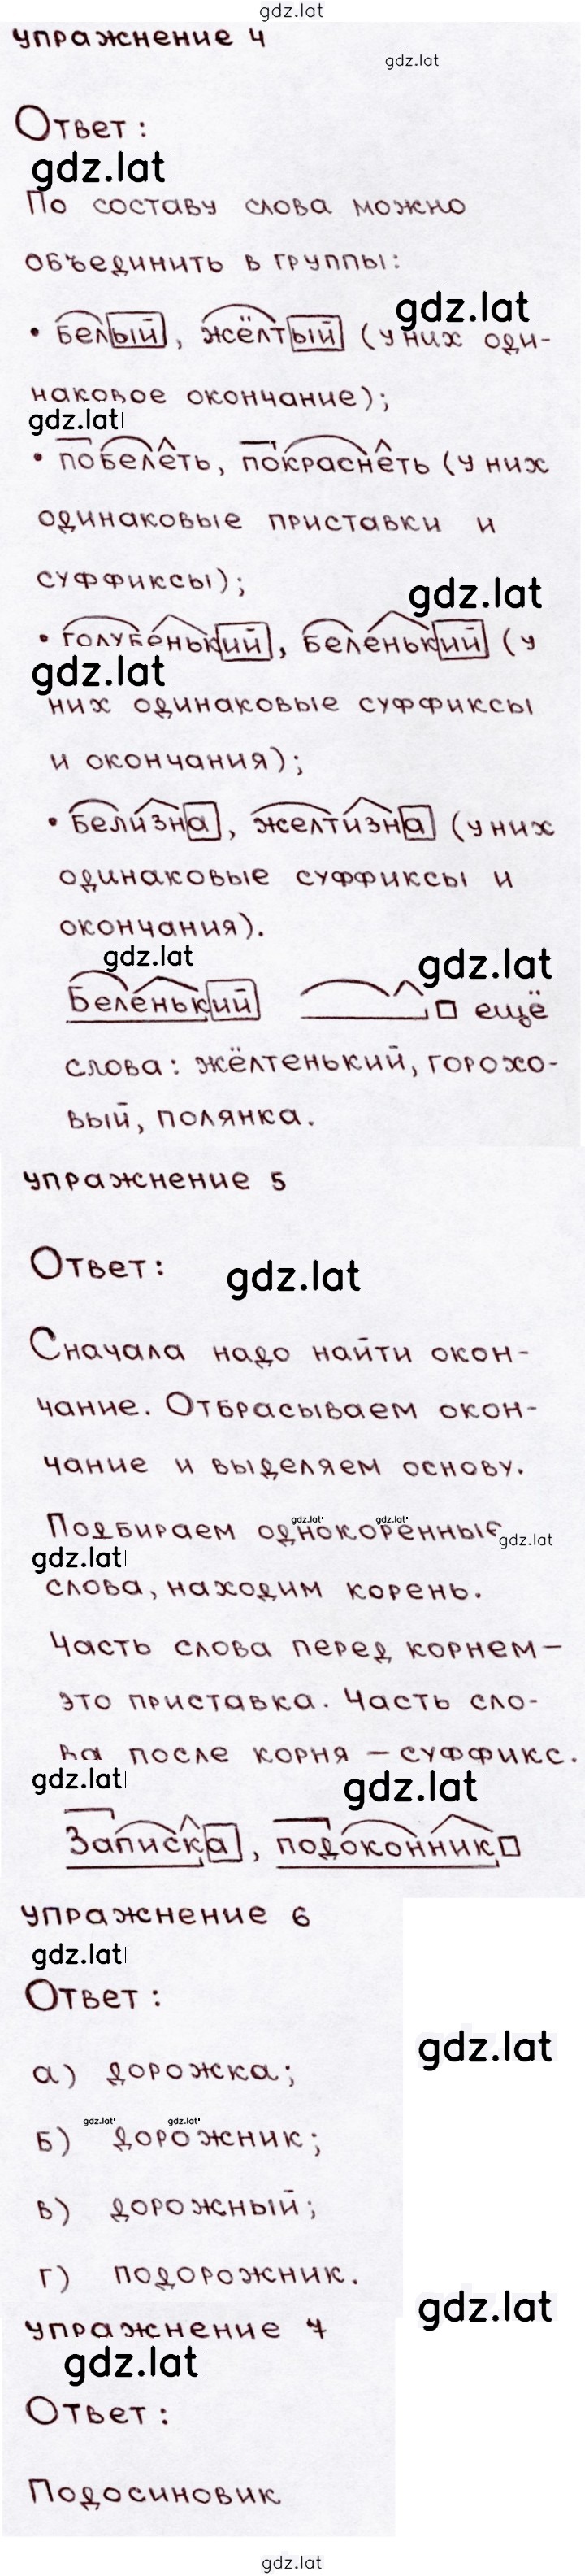 gdz.lat
упражнение 4
gdz.lat
Ответ:
gdz.lat
По составу слова можно
объединить в группы:
gdz.lat
• белый, жёлтый (у них оди-
наковое окончание);
gdz.lat
• побелеть, покраснеть (у них
одинаковые приставки и
суффиксы);
gdz.lat
• голубенький, беленький (у
gdz.lat
них одинаковые суффиксы
и окончания);
• белизна, желтизна (у них
одинаковые суффиксы и
окончания).
gdz.lat gdz.lat
Беленький ещё
слова: жёлтенький, горохо-
вый, полянка.
упражнение 5
Ответ:
gdz.lat
Сначала надо найти окон-
чание. Отбрасываем окон-
чание и выделяем основу.
gdz.lat gdz.lat
Подбираем однокоренные
gdz.lat
gdz.lat
слова, находим корень.
Часть слова перед корнем –
это приставка. Часть сло-
ва после корня – суффикс.
gdz.lat gdz.lat
Записка, подоконник
упражнение 6
gdz.lat
Ответ:
gdz.lat
а) дорожка;
gdz.lat gdz.lat
б) дорожник;
в) дорожный;
г) подорожник.
gdz.lat
упражнение 7
gdz.lat
Ответ:
Подосиновик
gdz.lat